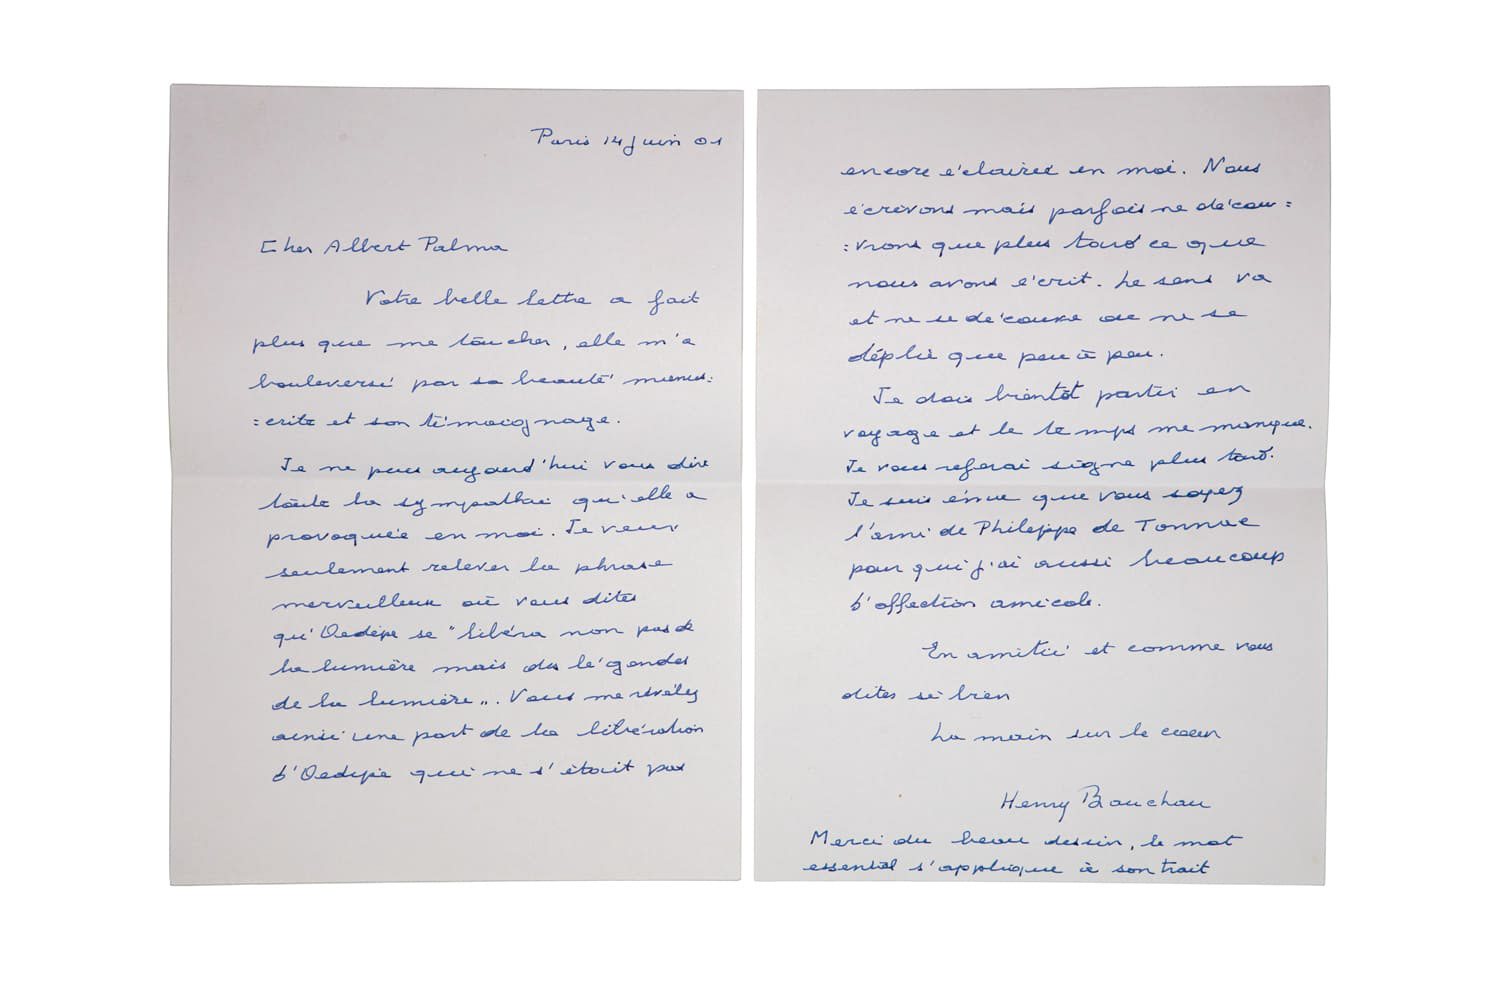 Paris 14 juin 01
Cher Albert Palma
Votre belle lettre a fait
plus que me toucher, elle m'a
bouleversé par sa beauté manus:
:crite et son témoignage.
Je ne peux aujourd'hui vous dire
toute la sympathie qu'elle a
provoquée en moi. Je veux
seulement relever la phrase
merveilleuse où vous dites
qu'Oedipe se "libéra non pas de
la lumière mais des légendes
de la lumière". Vous me révélez
ainsi une part de la libération
d'Oedipe qui ne s'était pas
encore éclairée en moi. Nous
écrivons mais parfois ne décou:
:vrons que plus tard ce que
nous avons écrit. Le sens va
et ne se découvre ou ne se
déplie que peu à peu.
Je dois bientôt partir en
voyage et le temps me manque.
Je vous referai signe plus tard.
Je suis ému que vous soyez
l'ami de Philippe de Tonnac
pour qui j'ai aussi beaucoup
d'affection amicale.
En amitié et comme vous
dites si bien
La main sur le coeur
Henry Bauchau
Merci du beau dessin, le mot
essentiel s'applique à son trait